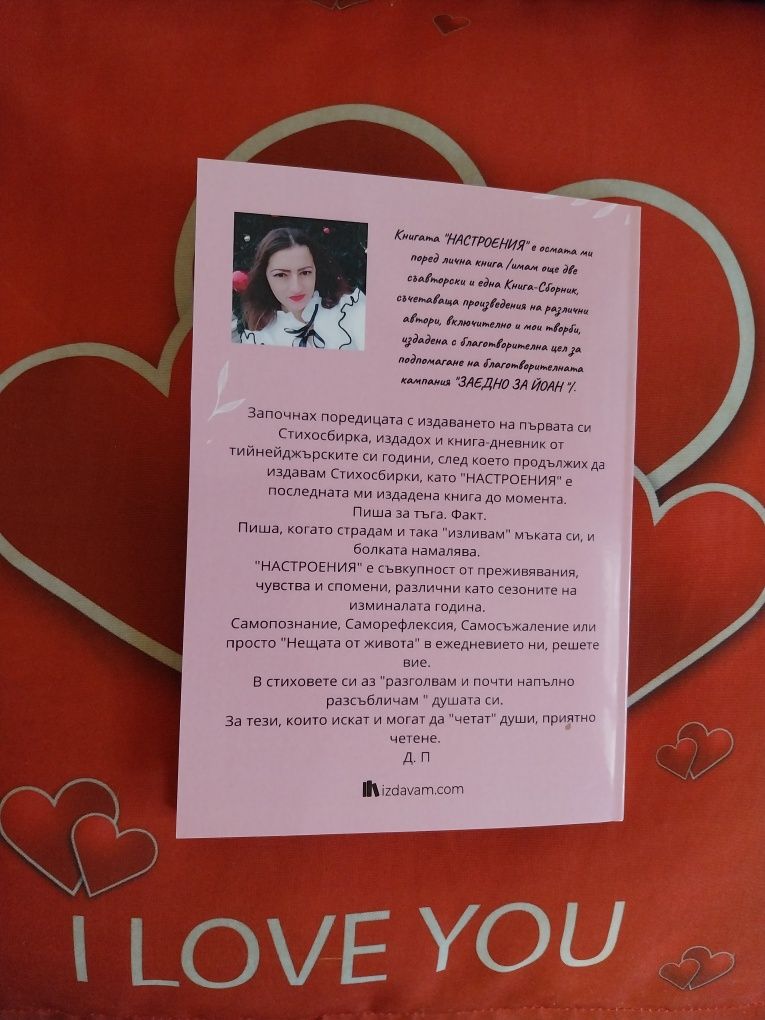 Книгата "НАСТРОЕНИЯ" е осмата ми
поред лична книга /имам още две
съавторски и една Книга-Сборник,
съчетаваща произведения на различни
автори, включително и мои творби,
издадена с благотворителна цел за
подпомагане на благотворителната
кампания "ЗАЕДНО ЗА ЙОАН "/.
Започнах поредицата с издаването на първата си
Стихосбирка, издадох и книга-дневник от
тийнейджърските си години, след което продължих да
издавам Стихосбирки, като "НАСТРОЕНИЯ" е
последната ми издадена книга до момента.
Пиша за тъга. Факт.
Пиша, когато страдам и така "изливам" мъката си, и
болката намалява.
"НАСТРОЕНИЯ" е съвкупност от преживявания,
чувства и спомени, различни като сезоните на
изминалата година.
Самопознание, Саморефлексия, Самосъжаление или
просто "Нещата от живота" в ежедневието ни, решете
вие.
В стиховете си аз "разголвам и почти напълно
разсъбличам " душата си.
За тези, които искат и могат да "четат" души, приятно
четене.
Д. П
izdavam.com
I LOVE YOU